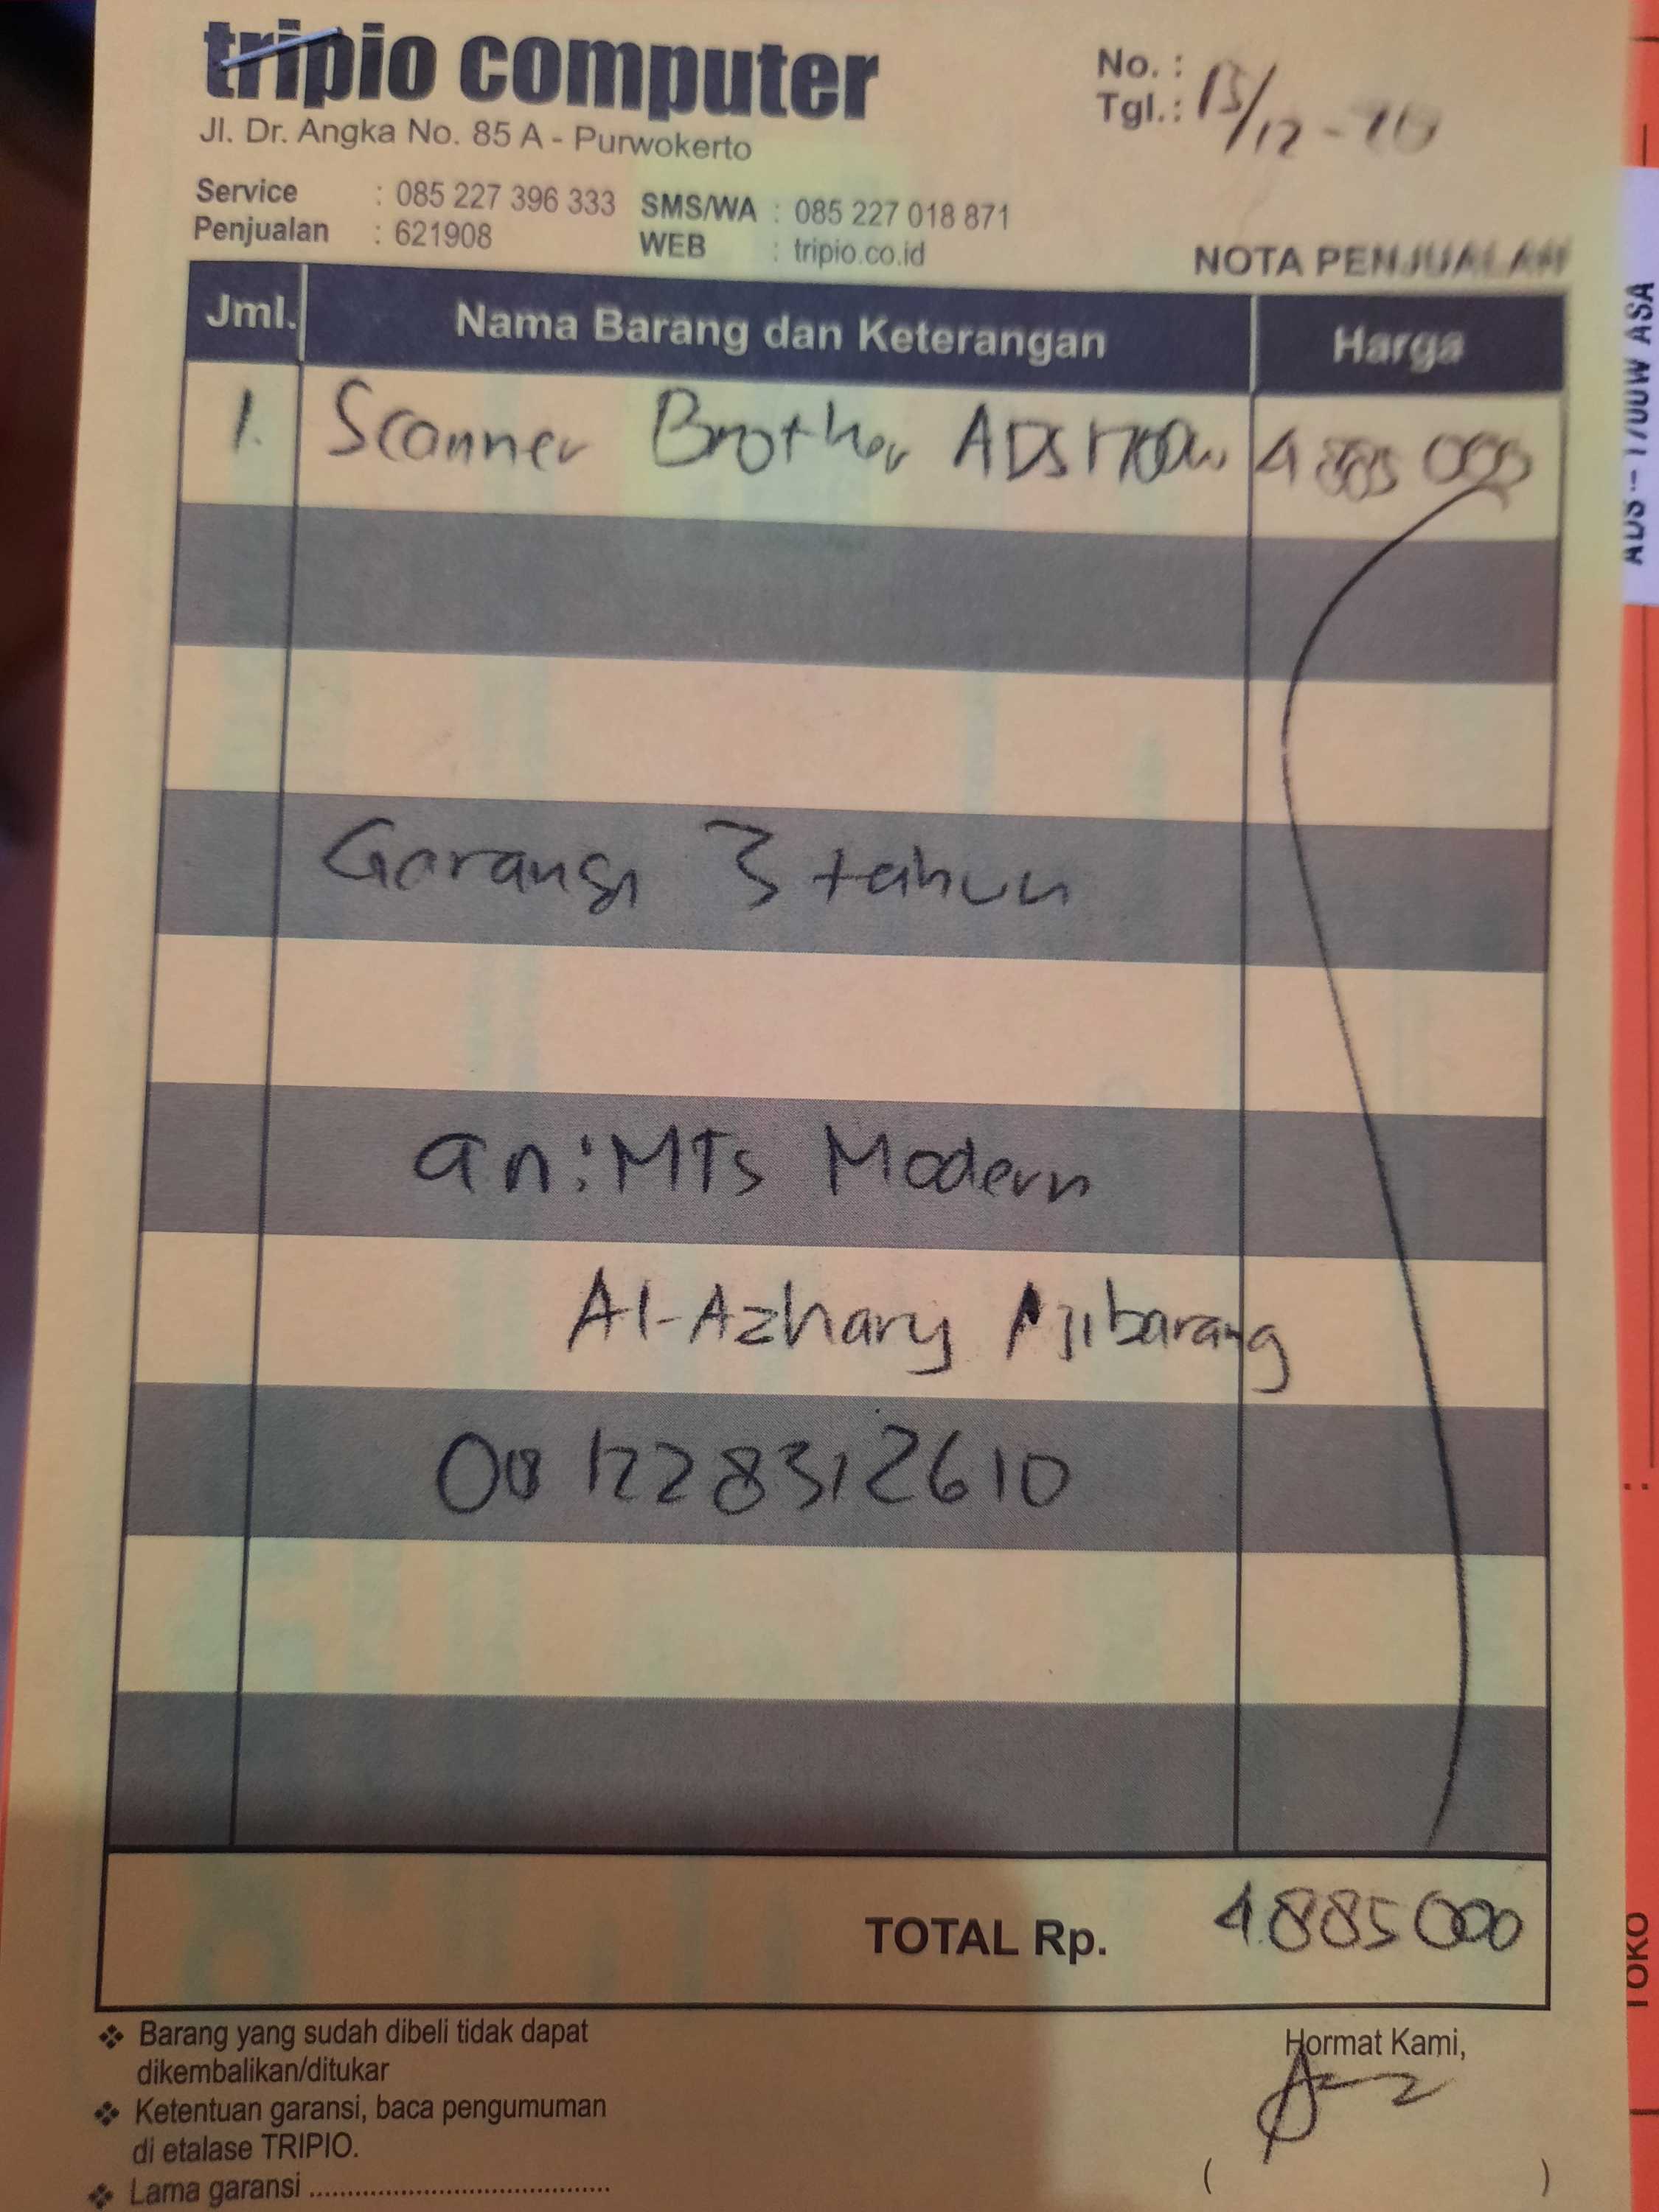 tripio computer
Jl. Dr. Angka No. 85 A - Purwokerto
No. :
Tgl. : 15/12 - 20
Service : 085 227 396 333 SMS/WA : 085 227 018 871
Penjualan : 621908 WEB : tripio.co.id
NOTA PENJUALAN
Jml. Nama Barang dan Keterangan Harga
1. Scanner Brother ADS1700w 4885 000
Garansi 3 tahun
an: MTs Modern
Al-Azhary Ajibarang
081228312610
TOTAL Rp. 4.885 000
❖ Barang yang sudah dibeli tidak dapat
dikembalikan/ditukar
❖ Ketentuan garansi, baca pengumuman
di etalase TRIPIO.
❖ Lama garansi ........................................
Hormat Kami,
( )
ADS-1700W ASA
TOKO